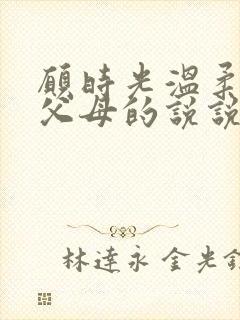 願時光溫柔
父母的說說
林達永 金光